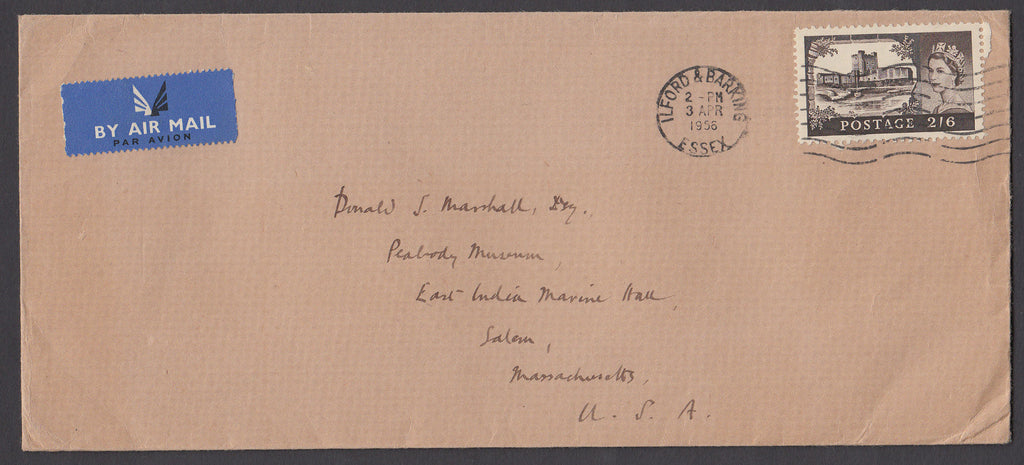 BY AIR MAIL
PAR AVION
ILFORD & BARKING
2 - PM
3 APR
1956
ESSEX
POSTAGE 2/6
Donald S. Marshall, Esq.,
Peabody Museum,
East India Marine Hall,
Salem,
Massachusetts,
U. S. A.